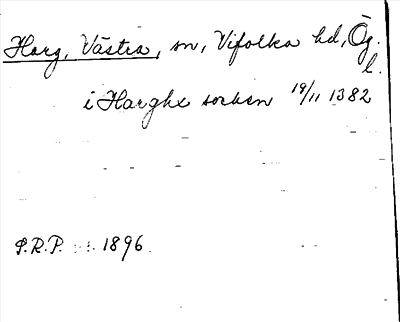 Harg, Västra, sn, Vifolka hd, Ög.
l.
i Harghx sorken 19/11 1382
S.R.P. 1896